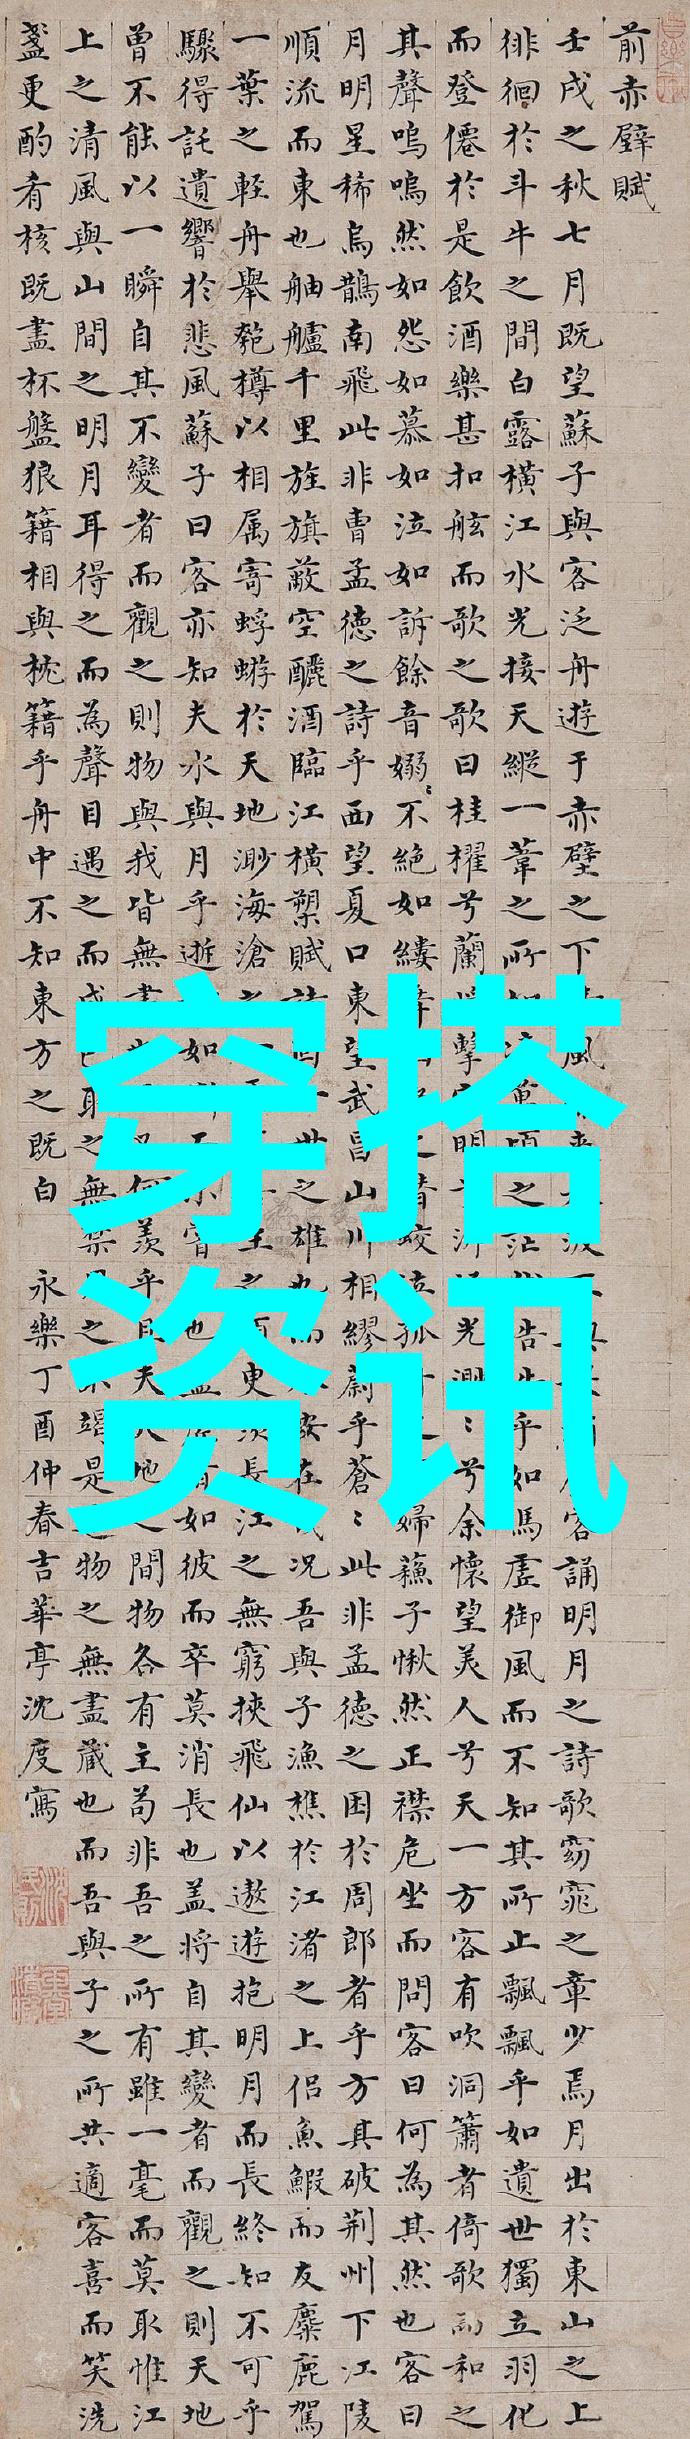 前赤壁賦
壬戌之秋七月既望蘇子與客泛舟遊于赤壁之下風客誦明月之詩歌窈窕之章少焉月出於東山之上
徘徊於斗牛之間白露橫江水光接天縱一葦之所如萬頃之茫乎如馮虛御風而不知其所止飄飄乎如遺世獨立羽化
而登僊於是飲酒樂甚扣舷而歌之歌曰桂櫂兮蘭擊明光渺〻兮余懷望美人兮天一方客有吹洞簫者倚歌而和之
其聲嗚嗚然如怨如慕如泣如訴餘音嫋〻不絕如縷蛟泣孤婦蘓子愀然正襟危坐而問客曰何為其然也客曰
月明星稀烏鵲南飛此非曹孟德之詩乎西望夏口東望武昌山川相繆蔚乎蒼〻此非孟德之困於周郎者乎方其破荆州下江陵
順流而東也舳艫千里旌旗蔽空釃酒臨江橫槊賦世之雄也而安在況吾與子漁樵於江渚之上侶魚鰕而友麋鹿駕
一葉之輕舟舉匏樽以相属寄蜉蝣於天地渺海滄生之須臾羨長江之無窮挾飛仙以遨遊抱明月而長終知不可乎
驟得託遺響於悲風蘇子曰客亦知夫水與月乎逝如嘗也盈有如彼而卒莫消長也盖將自其變者而觀之則天地
曾不能以一瞬自其不變者而觀之則物與我皆無何羨乎且夫天地之間物各有主苟非吾之所有雖一毫而莫取惟江
上之清風與山間之明月耳得之而為聲目遇之而成色取之無禁之竭是物之無盡藏也而吾與子之所共適客喜而笑洗
盞更酌肴核既盡杯盤狼籍相與枕籍乎舟中不知東方之既白 永樂丁酉仲春吉華亭沈度寫
穿搭
资讯